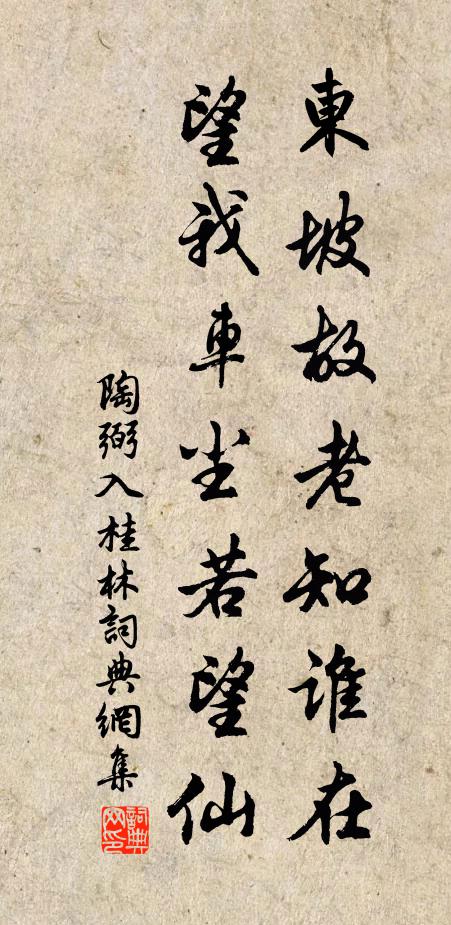 東坡故老知誰在
望我車尘若望仙
陶弼入桂林詞典網集
詞典網印